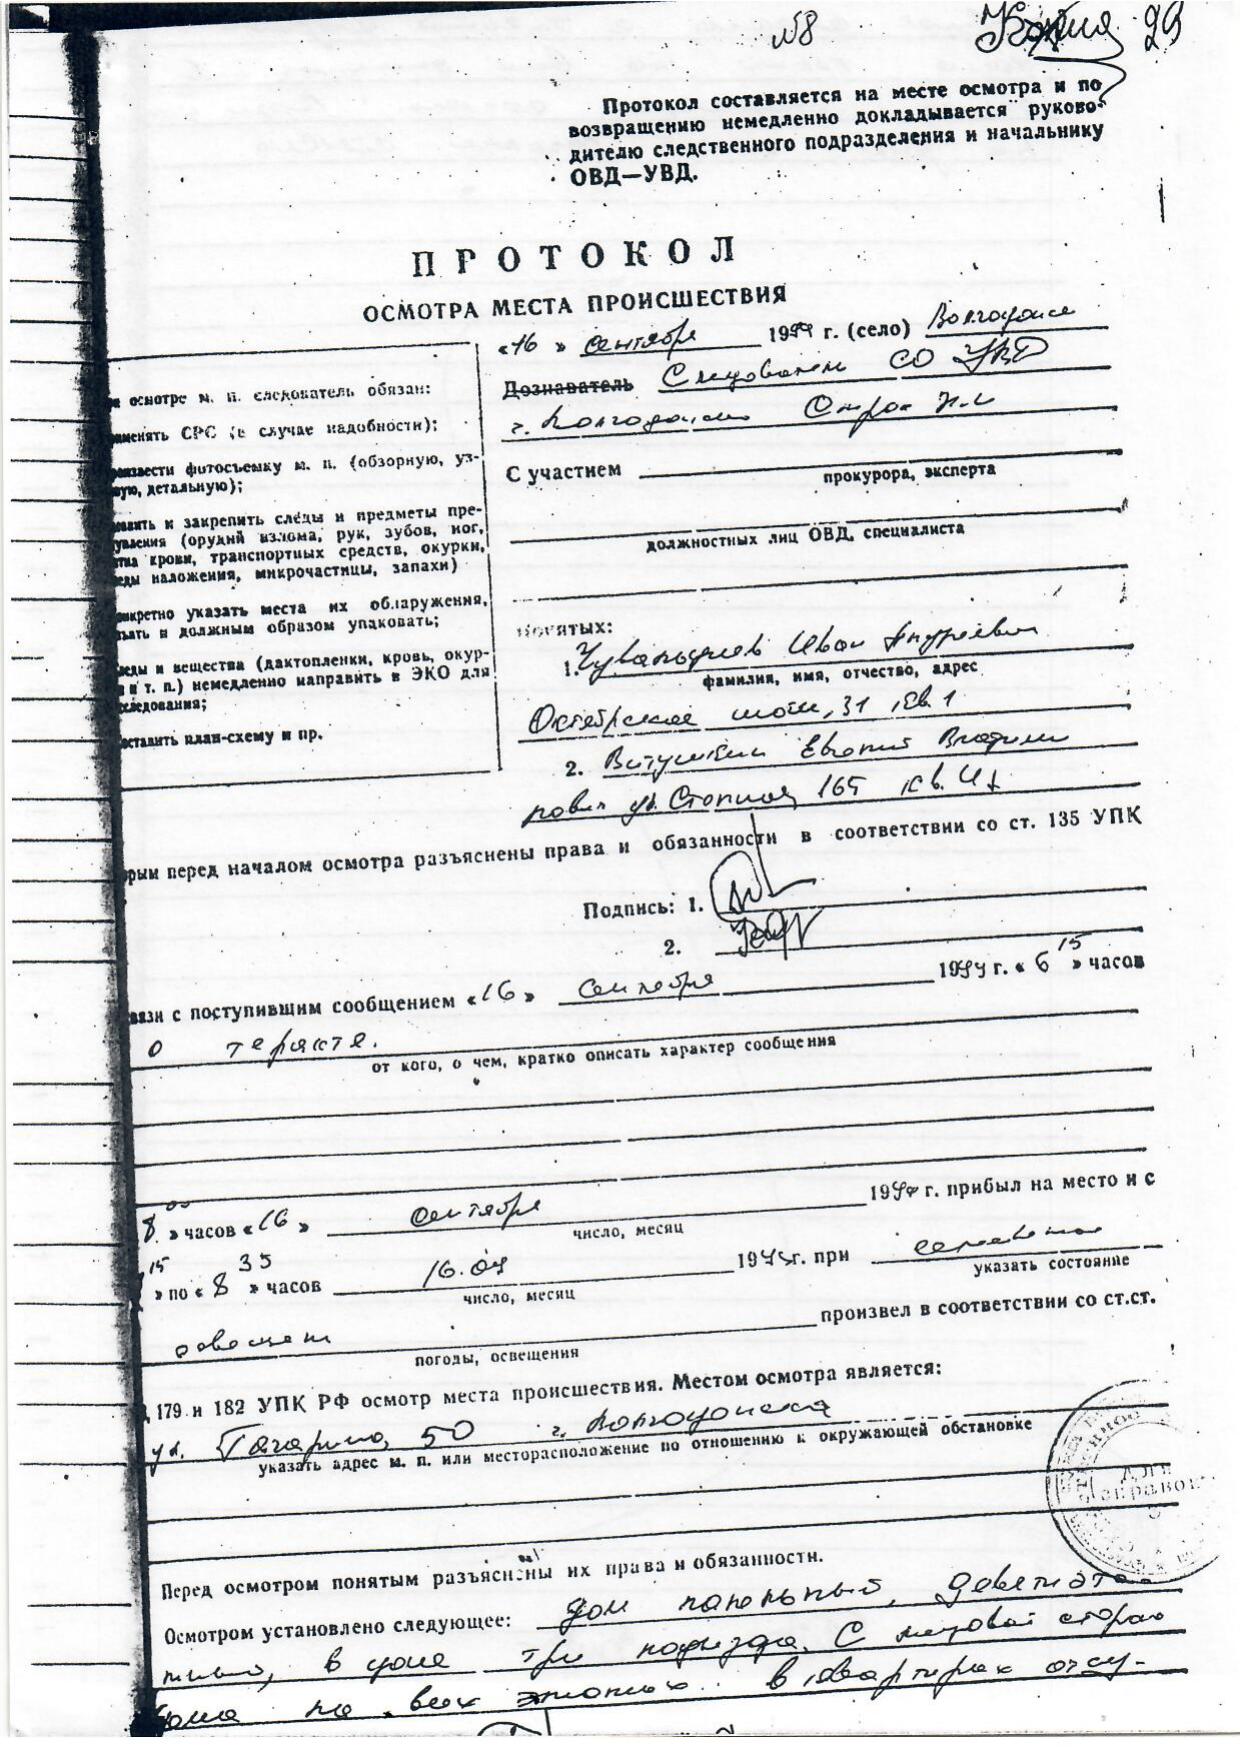 №8 Копия 29
Протокол составляется на месте осмотра и по
возвращению немедленно докладывается руково-
дителю следственного подразделения и начальнику
ОВД—УВД.
ПРОТОКОЛ
ОСМОТРА МЕСТА ПРОИСШЕСТВИЯ
«16» сентября 1999 г. (село) Волгодонск
Дознаватель Следователь СО УВД
г. Волгодонска
С участием
прокурора, эксперта
должностных лиц ОВД, специалиста
понятых:
1. Иван Андреевич
фамилия, имя, отчество, адрес
Октябрьское шоссе, 31 кв. 1
2. Евгений Владими
рович ул. Степная 165 кв.
и осмотре м. п. следователь обязан:
именять СРС (в случае надобности);
оизвести фотосъемку м. п. (обзорную, уз-
вую, детальную);
овить и закрепить следы и предметы пре-
тупления (орудий взлома, рук, зубов, ног,
ятна крови, транспортных средств, окурки,
еды наложения, микрочастицы, запахи)
онкретно указать места их обнаружения,
ъять и должным образом упаковать;
еды и вещества (дактопленки, кровь, окур-
и и т. п.) немедленно направить в ЭКО для
сследования;
оставить план-схему и пр.
орым перед началом осмотра разъяснены права и обязанности в соответствии со ст. 135 УПК
Подпись: 1.
2.
вязи с поступившим сообщением «16» сентября 1999 г. «6 15» часов
о теракте.
от кого, о чем, кратко описать характер сообщения
8 00» часов «16» сентября 199 г. прибыл на место и с
число, месяц
15 » по «8 35» часов 16.09 199 г. при
число, месяц
указать состояние
произвел в соответствии со ст.ст.
погоды, освещения
179 и 182 УПК РФ осмотр места происшествия. Местом осмотра является:
ул. Гагарина, 50 г. Волгодонска
указать адрес м. п. или месторасположение по отношению к окружающей обстановке
для
справок
Перед осмотром понятым разъяснены их права и обязанности.
Осмотром установлено следующее: Дом панельный, девятиэта
жный, в доме три подъезда. С лицевой сторо
дома на всех этажах в квартирах отсу-